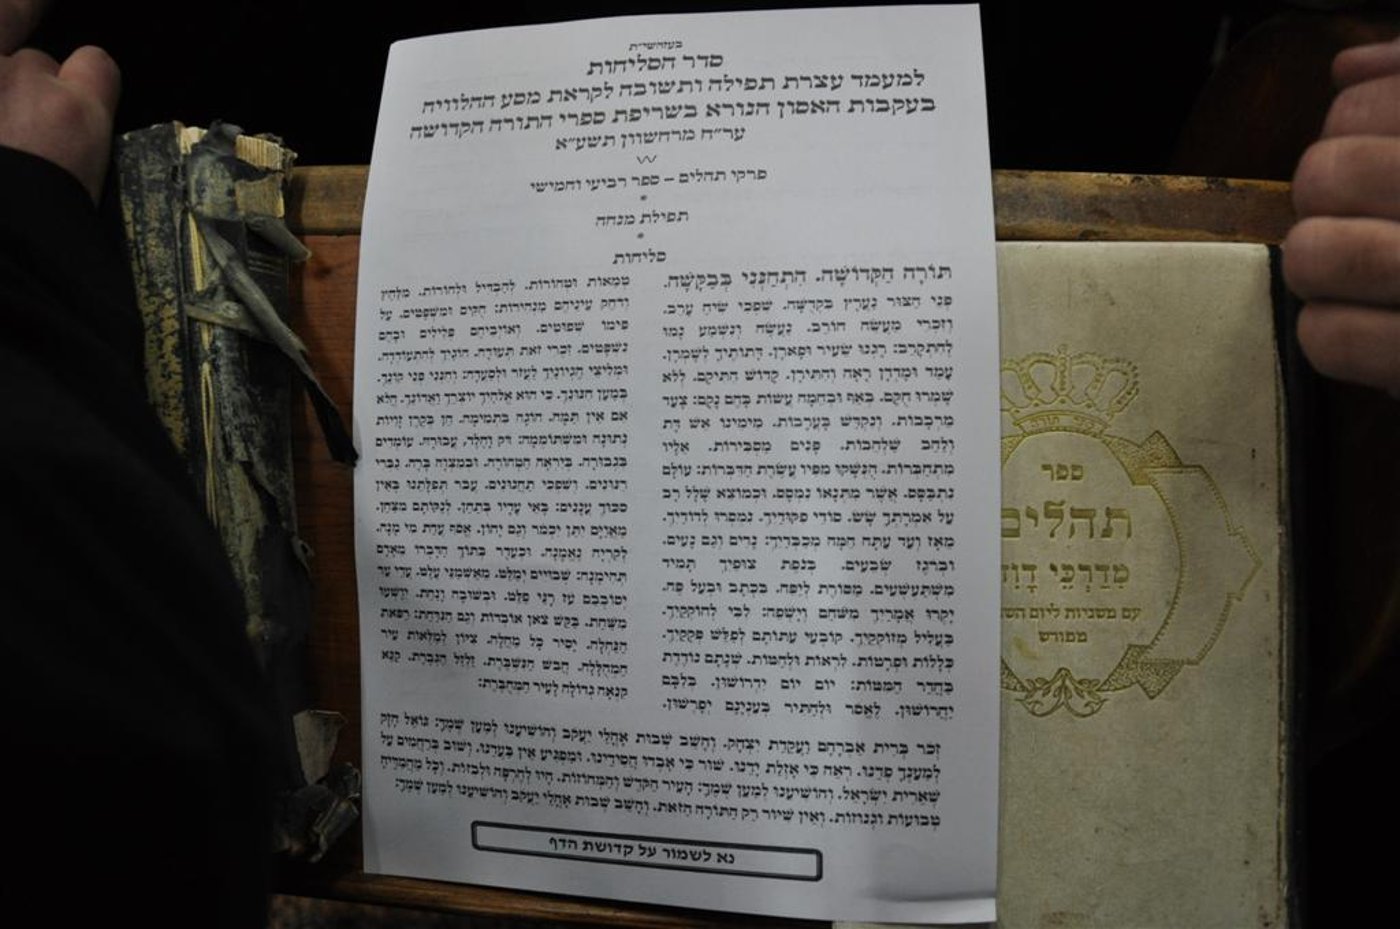 בעזהשי״ת
סדר הסליחות
למעמד עצרת תפילה ותשובה לקראת מסע ההלוויה
בעקבות האסון הנורא בשריפת ספרי התורה הקדושה
ער״ח מרחשוון תשע״א
פרקי תהלים – ספר רביעי וחמישי
תפילת מנחה
סליחות
תּוֹרָה הַקְּדוֹשָׁה. הִתְחַנְּנִי בְּבַקָּשָׁה.
פְּנֵי הַצּוּר נַעֲרָץ בִּקְדֻשָּׁה. שִׁפְכִי שִׂיחַ עָרֵב.
וְזִכְרִי מַעֲשֵׂה חוֹרֵב. נַעֲשֶׂה וְנִשְׁמַע נָמוּ
לְהִתְקָרֵב: רָנְנוּ שֵׂעִיר וּפָארָן. דָּתוֹתֶיךָ לְשָׁמְרָן.
עָמַד וּמְדָדָן רָאָה וְהִתִּירָן. קָדוֹשׁ הִתִּיקָם. לְלֹא
שָׁמְרוּ חֻקָּם. בְּאַף וּבְחֵמָה עֲשׂוֹת בָּהֶם נָקָם: צְעַד
מַרְכָּבוֹת. וְנִקְדַּשׁ בָּעֲרָבוֹת. מִימִינוֹ אֵשׁ דָּת
וְלַהַב שַׁלְהָבוֹת. פָּנִים מַסְבִּירוֹת. אֵלָיו
מִתְחַבְּרוֹת. הֻנְשְׁקוּ מִפִּיו עֲשֶׂרֶת הַדִּבְּרוֹת: עוֹלָם
נִתְבַּסֵּם. אֲשֶׁר מִתְּנָאוֹ נִמְסָם. וּכְמוֹצֵא שָׁלָל רָב
עַל אִמְרָתְךָ שָׂשׂ. סוֹדֵי פִקּוּדַיִךְ. נִמְסְרוּ לְדוֹדַיִךְ.
מֵאָז וְעַד עַתָּה הֵמָּה מְכַבְּדַיִךְ: נָדִים וְגַם נָעִים.
וּבְרֹגֶז שְׂבֵעִים. בְּנֹפֶת צוּפַיִךְ תָּמִיד
מִשְׁתַּעְשְׁעִים. מָסוֹרֶת לְיַפֵּה. בִּכְתָב וּבְעַל פֶּה.
יָקְרוּ אֲמָרַיִךְ מִשֹּׁהַם וְיָשְׁפֵה: לִבִּי לְחוֹקְקַיִךְ.
בַּעֲלִיל מְזוּקָּקַיִךְ. קוֹבְעֵי עִתּוֹתָם לְפַלֵּשׁ פְּקָקַיִךְ.
כְּלָלוֹת וּפְרָטוֹת. לִרְאוֹת וּלְהַטּוֹת. שְׁנָתָם נוֹדֶדֶת
בַּחֲדַר הַמִּטּוֹת: יוֹם יוֹם יִדְרוֹשׁוּן. בְּלִבָּם
יַחֲרוֹשׁוּן. לֶאֱסֹר וּלְהַתִּיר בְּעִנְיָנָם יְפָרְשׁוּן.
טְמֵאוֹת וּטְהוֹרוֹת. לְהַבְדִּיל וּלְהוֹרוֹת. מִלַּחַץ
וְדֹחַק עֵינֵיהֶם מְנַהֲרוֹת: חֻקִּים וּמִשְׁפָּטִים. עַל
פִּימוֹ שְׁפוּטִים. וְאוֹיְבֵיהֶם פְּלִילִים וּבָהֶם
נִשְׁפָּטִים. זִכְרִי זֹאת תְּעוּדָה. חוֹנַיִךְ לְהִתְעוֹדְדָה.
וּמְלִיצֵי הֶגְיוֹנַיִךְ לְעֵזֶר וּלְסַעֲדָה: וְחַנְּנִי פְּנֵי קוֹנֵךְ.
בְּמַעַן חִנּוּנֵךְ. כִּי הוּא אֱלֹהַיִךְ יוֹצְרֵךְ וַאֲדוֹנֵךְ. הֲלֹא
אִם אֵין תַּמָּה. הוֹגָה בִּתְמִימָה. הֵן בְּקֶרֶן זָוִיּוֹת
נְתוּנָה וּמִשְׁתּוֹמְמָה: דֹּק וָחֶלֶד, עֲבוּרֵךְ. עוֹמְדִים
בִּגְבוּרֵךְ. בְּיִרְאָה הַטְּהוֹרָה. וּבְמִצְוָה בָּרָה. גִּבְרִי
רִנּוּנִים. וְשִׁפְכִי תַּחֲנוּנִים. עֲבֹר תְּפִלָּתֵנוּ בְּאֵין
סִכּוּךְ עֲנָנִים: בֹּאִי עָדָיו בְּתַחַן. לְנַקּוֹתָם מִצַּחַן.
מֵאַיִּם יִתֵּן יִכְמֹר וְגַם יָחוֹן. אֱסֹף עֲדַת מִי מָנָה.
לְקִרְיָה נֶאֱמָנָה. וּכְעֵדֶר בְּתוֹךְ הַדָּבְרוֹ מֵאֱדֹם
תְּהִימֶנָה: שְׁבוּיִים יְמַלֵּט. מֵאַשְׁמַנֵּי עֶלֶט. עֲדֵי עַד
יְסוֹבְבֵם עֹז רָנֵּי פַלֵּט. וּבְשׁוּבָה וָנַחַת. יִוָּשְׁעוּ
מִשַּׁחַת. בַּקֵּשׁ צֹאן אוֹבְדוֹת וְגַם הַנִּדַּחַת: רְפֹאת
הַנַּחֲלָה. יָסִיר כָּל מַחֲלָה. צִיּוֹן לְמַלְּאוֹת עִיר
הַמְהֻלָּלָה. חֲבֹשׁ הַנִּשְׁבֶּרֶת. זַלְזַל הַגְּבֶרֶת. קַנֵּא
קִנְאָה גְדוֹלָה לָעִיר הַמְחֻבֶּרֶת:
זְכֹר בְּרִית אַבְרָהָם וַעֲקֵדַת יִצְחָק. וְהָשֵׁב שְׁבוּת אָהֳלֵי יַעֲקֹב וְהוֹשִׁיעֵנוּ לְמַעַן שְׁמֶךָ: גּוֹאֵל חָזָק
לְמַעַנְךָ פְּדֵנוּ. רְאֵה כִּי אָזְלַת יָדֵנוּ. שׁוּר כִּי אָבְדוּ חֲסִידֵינוּ. וּמַפְגִּיעַ אֵין בַּעֲדֵנוּ. וְשׁוּב בְּרַחֲמִים עַל
שְׁאֵרִית יִשְׂרָאֵל. וְהוֹשִׁיעֵנוּ לְמַעַן שְׁמֶךָ: הָעִיר הַקֹּדֶשׁ וְהַמְּחוֹזוֹת. הָיוּ לְחֶרְפָּה וּלְבִזּוֹת. וְכָל מַחֲמַדֶּיהָ
טְבוּעוֹת וּגְנוּזוֹת. וְאֵין שִׁיּוּר רַק הַתּוֹרָה הַזֹּאת. וְהָשֵׁב שְׁבוּת אָהֳלֵי יַעֲקֹב וְהוֹשִׁיעֵנוּ לְמַעַן שְׁמֶךָ:
נא לשמור על קדושת הדף
ספר
תהלים
מִדַּרְכֵי דָוִד
עם משניות ליום
מפורש